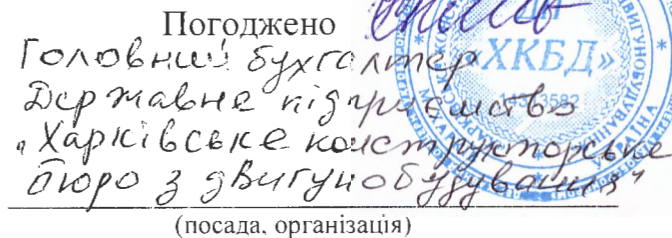 Погоджено
Головний бухгалтер
Державне підприємство
„Харківське конструкторське
бюро з двигунобудування"
(посада, організація)
ДП
«ХКБД»